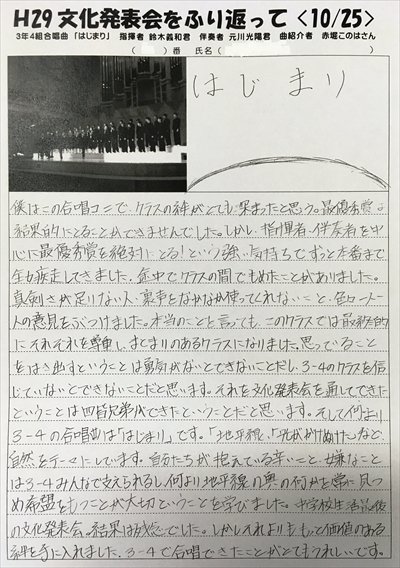 H29 文化発表会をふり返って <10/25>
3年4組合唱曲 「はじまり」 指揮者 鈴木義和君 伴奏者 元川光陽君 曲紹介者 赤堀このはさん
( )番 氏名( )
はじまり
僕はこの合唱コンで、クラスの絆がとても深まったと思う。最優秀賞は
結果的にとることができませんでした。しかし、指揮者、伴奏者を中
心に最優秀賞を絶対にとる!という強い気持ちでずっと本番まで
疾走してきました。途中でクラスの間でもめたことがありました。
真剣さが足りない人、裏声をなかなか使ってくれないこと、色々一人
一人の意見をぶつけました。本当のことを言っても、このクラスでは最終的
にそれぞれを尊重し、まとまりのあるクラスになりました。思っていること
をはき出すということは勇気がないとできないことだし、3-4のクラスを信
じていないとできないことだと思います。それを文化発表会を通してできた
ということは四苦八苦ができたということだと思います。そして何より
3-4の合唱曲は「はじまり」です。「地平線」、「風がかけぬけた」など、
自然をテーマにしています。自分たちが抱えている辛いこと、嫌なこと
は3-4みんなで支えられるし、何より地平線の奥の何かを常に見つ
め希望をもつことが大切ということを学びました。中学校生活最後
の文化発表会。結果は残念でした。しかしそれよりももっと価値のある
絆を手に入れました。3-4で合唱できたことがとてもうれしいです。